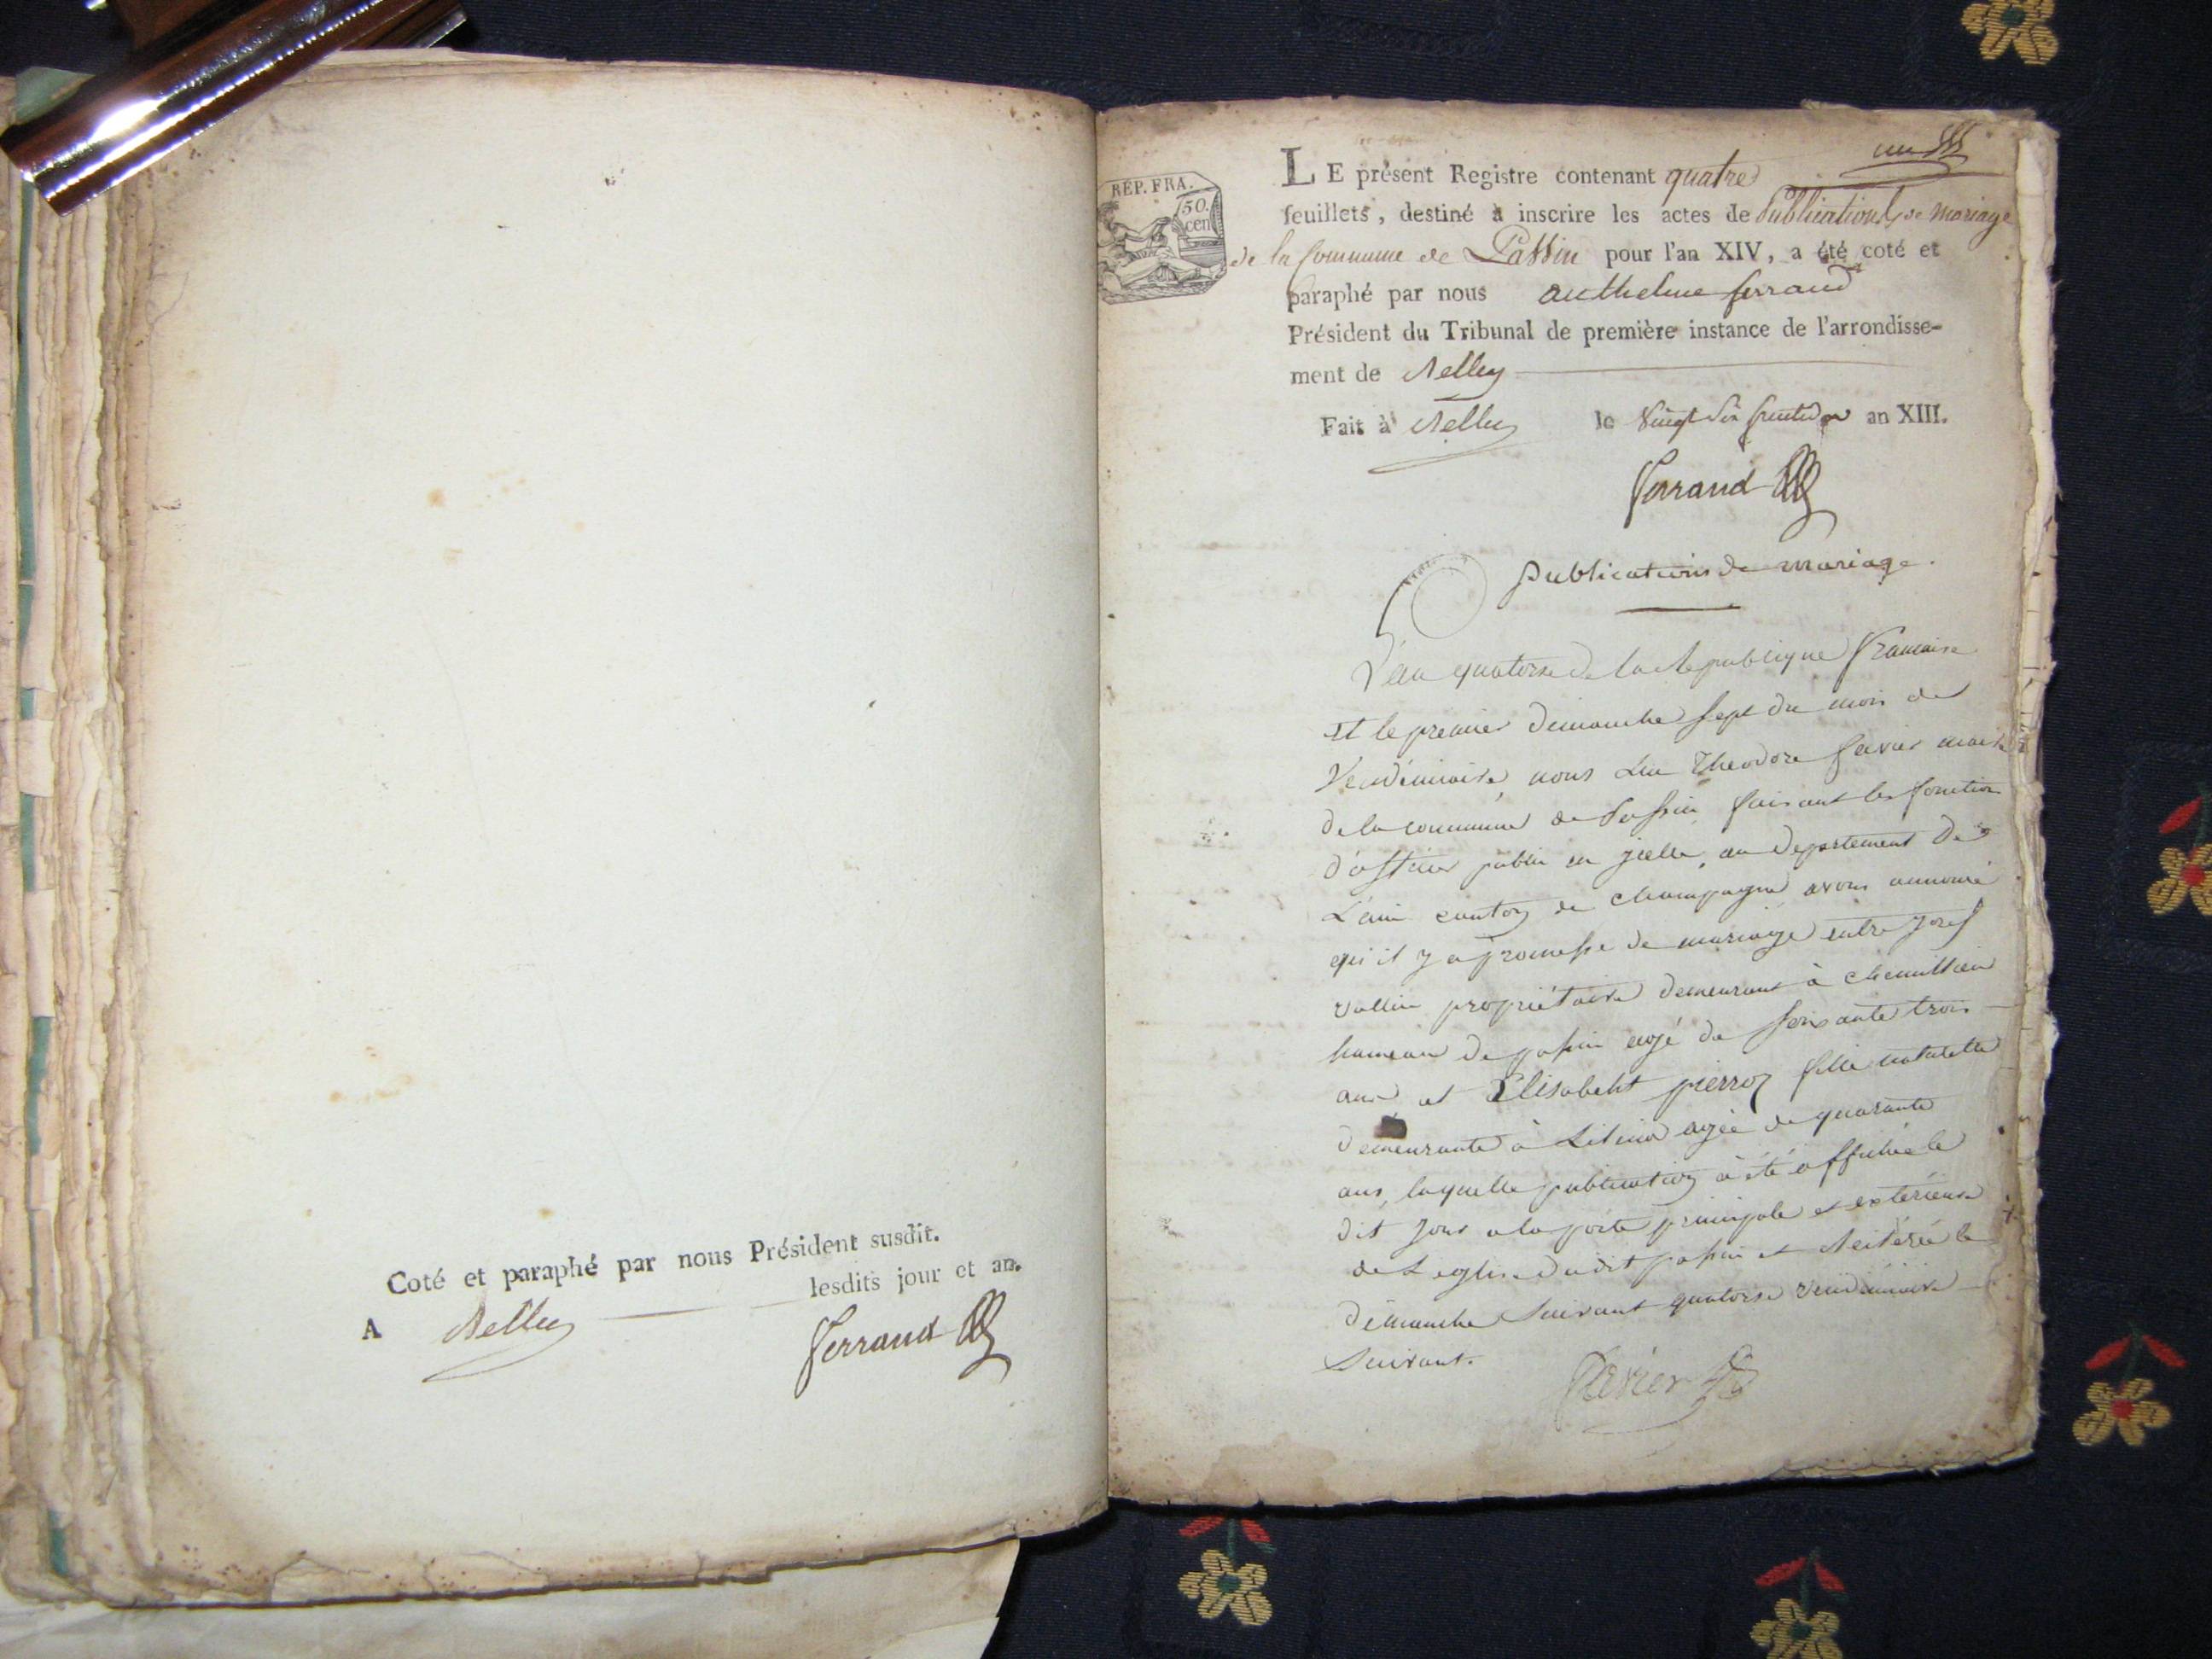 Coté et paraphé par nous Président susdit.
A Belley lesdits jour et an.
Ferrand
REP. FRA.
50.
cen
un
LE présent Registre contenant quatre
feuillets, destiné à inscrire les actes de Publications de mariage
de la Commune de Passin pour l'an XIV, a été coté et
paraphé par nous anthelme ferrand
Président du Tribunal de première instance de l'arrondisse-
ment de Belley
Fait à Belley le vingt six fructidor an XIII.
Ferrand
publications de mariage.
L'an quatorze de la République francaise
et le premier dimanche sept du mois de
Vendémiaire, nous Theodore favier maire
de la commune de Passin faisant les fonctions
d'officier public en icelle, au departement de
L'ain canton de champagne avons annoncé
qu'il y a promesse de mariage entre Josef
vallin propriétaire demeurant à chemillieu
hameau de passin agé de soixante trois
ans et Elisabeht pierron fille naturelle
demeurante à agée de quarante
ans, laquelle publication à été affichée le
dit jour a la porte principale et exterieure
de L'eglise dudit passin et Reiterée le
dimanche suivant quatorze vendémiaire
suivant.
favier